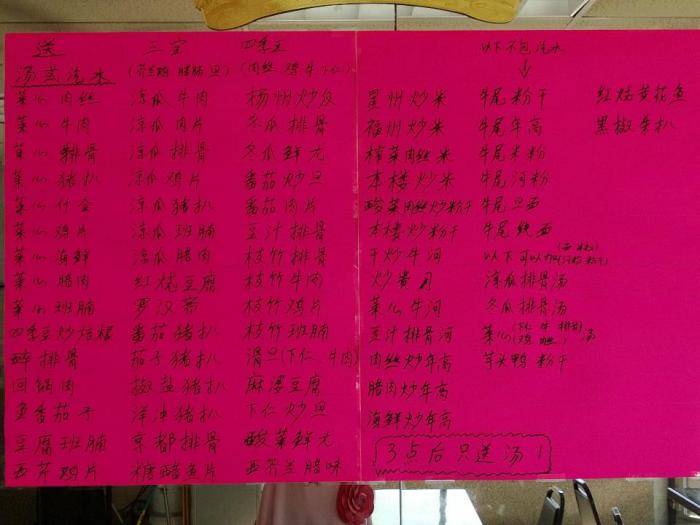 送
汤或汽水
菜心肉丝
菜心牛肉
菜心排骨
菜心猪扒
菜心什会
菜心鸡片
菜心海鲜
菜心腊肉
菜心班腩
四季豆炒桔粿
碎排骨
回锅肉
鱼番茄子
豆腐班腩
西芹鸡片
三宝
(芥兰鸡 腊肠 旦)
凉瓜牛肉
凉瓜肉片
凉瓜排骨
凉瓜鸡片
凉瓜猪扒
凉瓜班腩
凉瓜腊肉
红烧豆腐
罗汉斋
番茄猪扒
茄子猪扒
椒盐猪扒
洋冲猪扒
京都排骨
糖醋鱼片
四季豆
(肉丝 鸡 牛 下仁)
杨州炒反
冬瓜排骨
冬瓜鲜尤
番茄炒旦
番茄肉片
豆汁排骨
枝竹排骨
枝竹牛肉
枝竹鸡片
枝竹班腩
滑旦(下仁、牛肉)
麻婆豆腐
下仁炒旦
酸菜鲜尤
西芥兰腊味
以下不包汽水
星州炒米
福州炒米
榨菜肉丝米
本楼炒米
酸菜肉丝炒粉干
本楼炒粉干
干炒牛河
炒贵刁
菜心牛河
豆汁排骨河
肉丝炒年高
腊肉炒年高
海鲜炒年高
牛尾粉干
牛尾年高
牛尾米粉
牛尾河粉
牛尾旦面
牛尾线面
以下可以加
凉瓜排骨汤
冬瓜排骨汤
菜心(下仁 牛 排骨 鸡 腊)汤
芋头鸭粉干
红烧黄花鱼
黑椒朱扒
3点后只送汤!